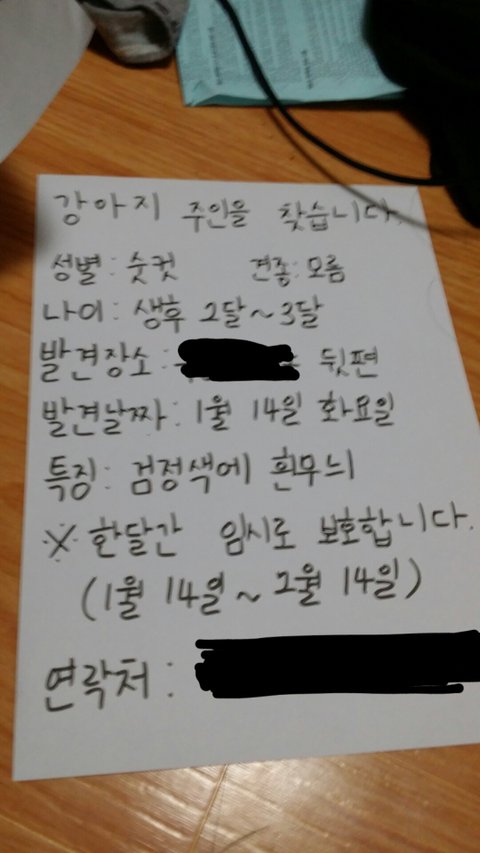 강아지 주인을 찾습니다.
성별: 숫컷 견종: 모름
나이: 생후 2달~3달
발견장소: 뒷편
발견날짜: 1월 14일 화요일
특징: 검정색에 흰무늬
※ 한달간 임시로 보호합니다.
(1월 14일 ~ 2월 14일)
연락처: